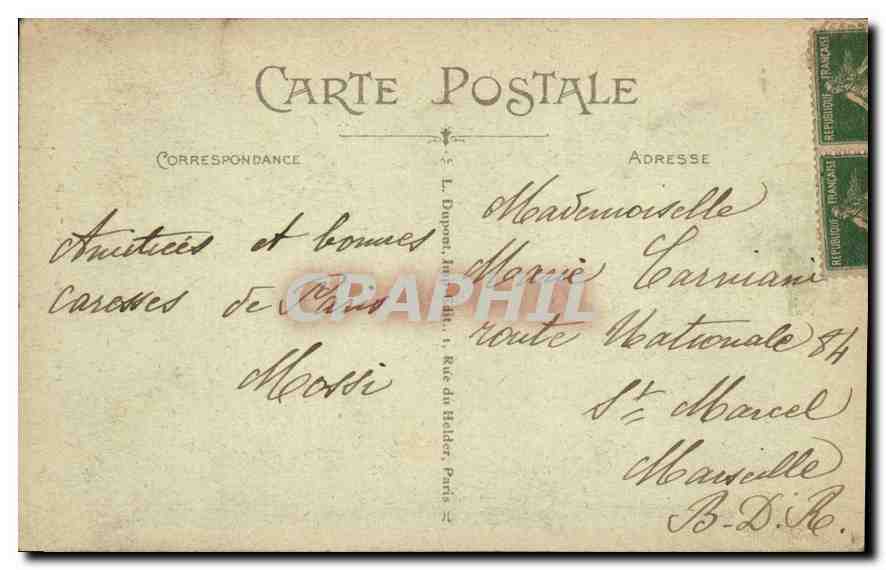 CARTE POSTALE
CORRESPONDANCE
Amitiées et bonnes
caresses de Paris
Mossi
L. Dupont, Imp. Edit., 1, Rue du Helder, Paris
ADRESSE
Mademoiselle
Marie Carviani
route Nationale 84
St. Marcel
Marseille
B-D.R.
REPUBLIQUE FRANÇAISE
REPUBLIQUE FRANÇAISE
CPAPHIL